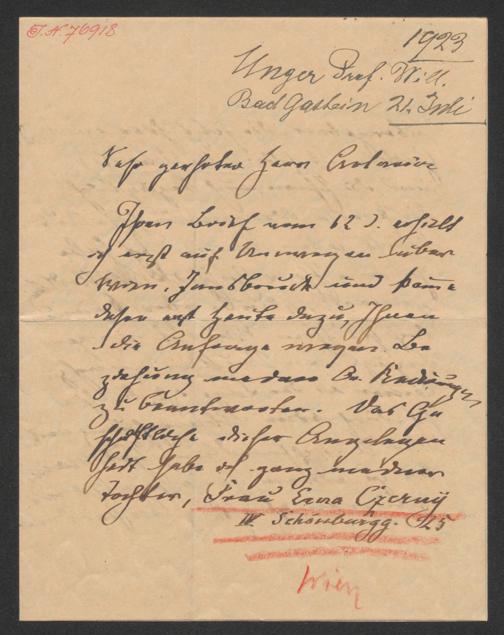 I.N. 76918
1923
Unger Prof. Will.
Bad Gastein 21. Juli
Sehr geehrter Herr
Ihren Brief vom 12 d. erhielt
ich erst auf Umwegen über
Wien, Innsbruck und komme
daher erst heute dazu, Ihnen
die Anfrage wegen Be
ziehung meiner Radirungen
zu beantworten. Das Ge
schäftliche dieser Angelegen
heit habe ich ganz meiner
Tochter, Frau Erna Czerny
IV Schönburgg. 25
Wien